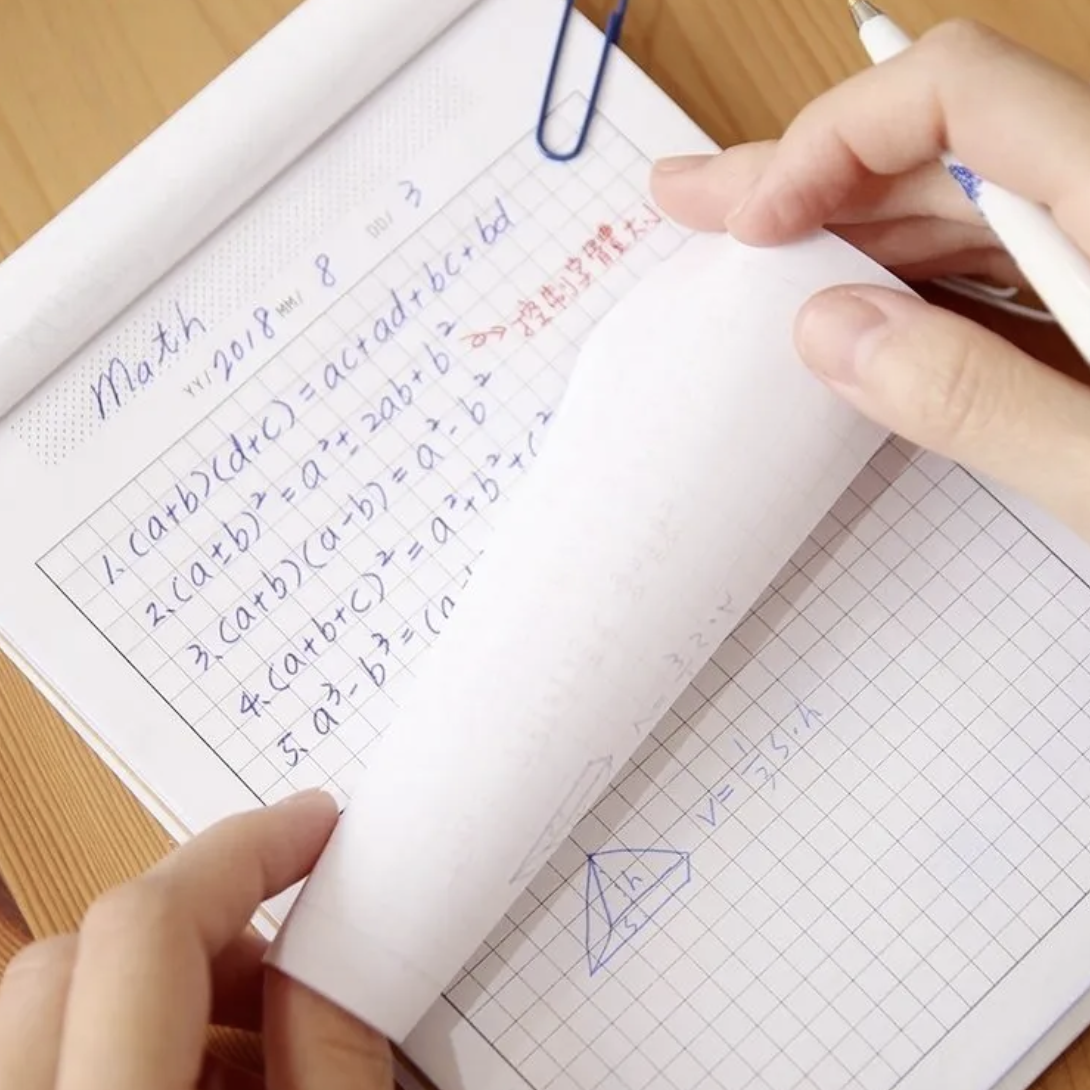 Math
YY/ 2018 MM/ 8 DD/ 3
1. (a+b)(d+c) = ac+ad+bc+bd
2. (a±b)² = a²±2ab+b² 控制字體大小
3. (a+b)(a-b) = a²-b²
4. (a+b+c)² = a²+b²+c²
5. a³-b³ = (a-
V = 1/3 S·h
h
S